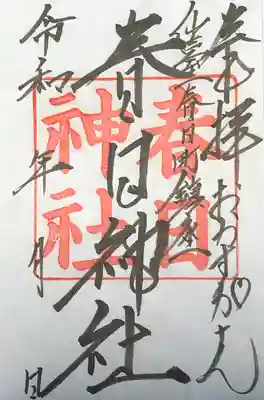 奉拝 おおすがさん
仙臺春日町鎮座
春日神社
春日
神社
令和 年 月 日